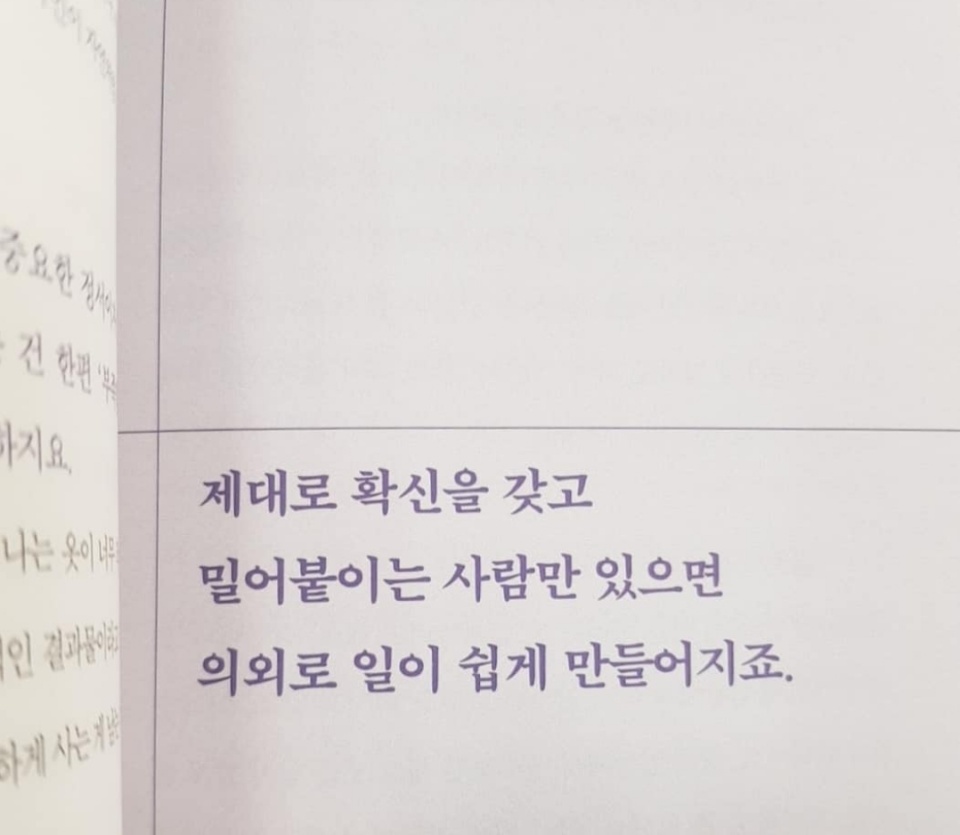 중요한
건 한편
하지요.
나는 옷이 너무
결과물이
하게 사는 게
제대로 확신을 갖고
밀어붙이는 사람만 있으면
의외로 일이 쉽게 만들어지죠.